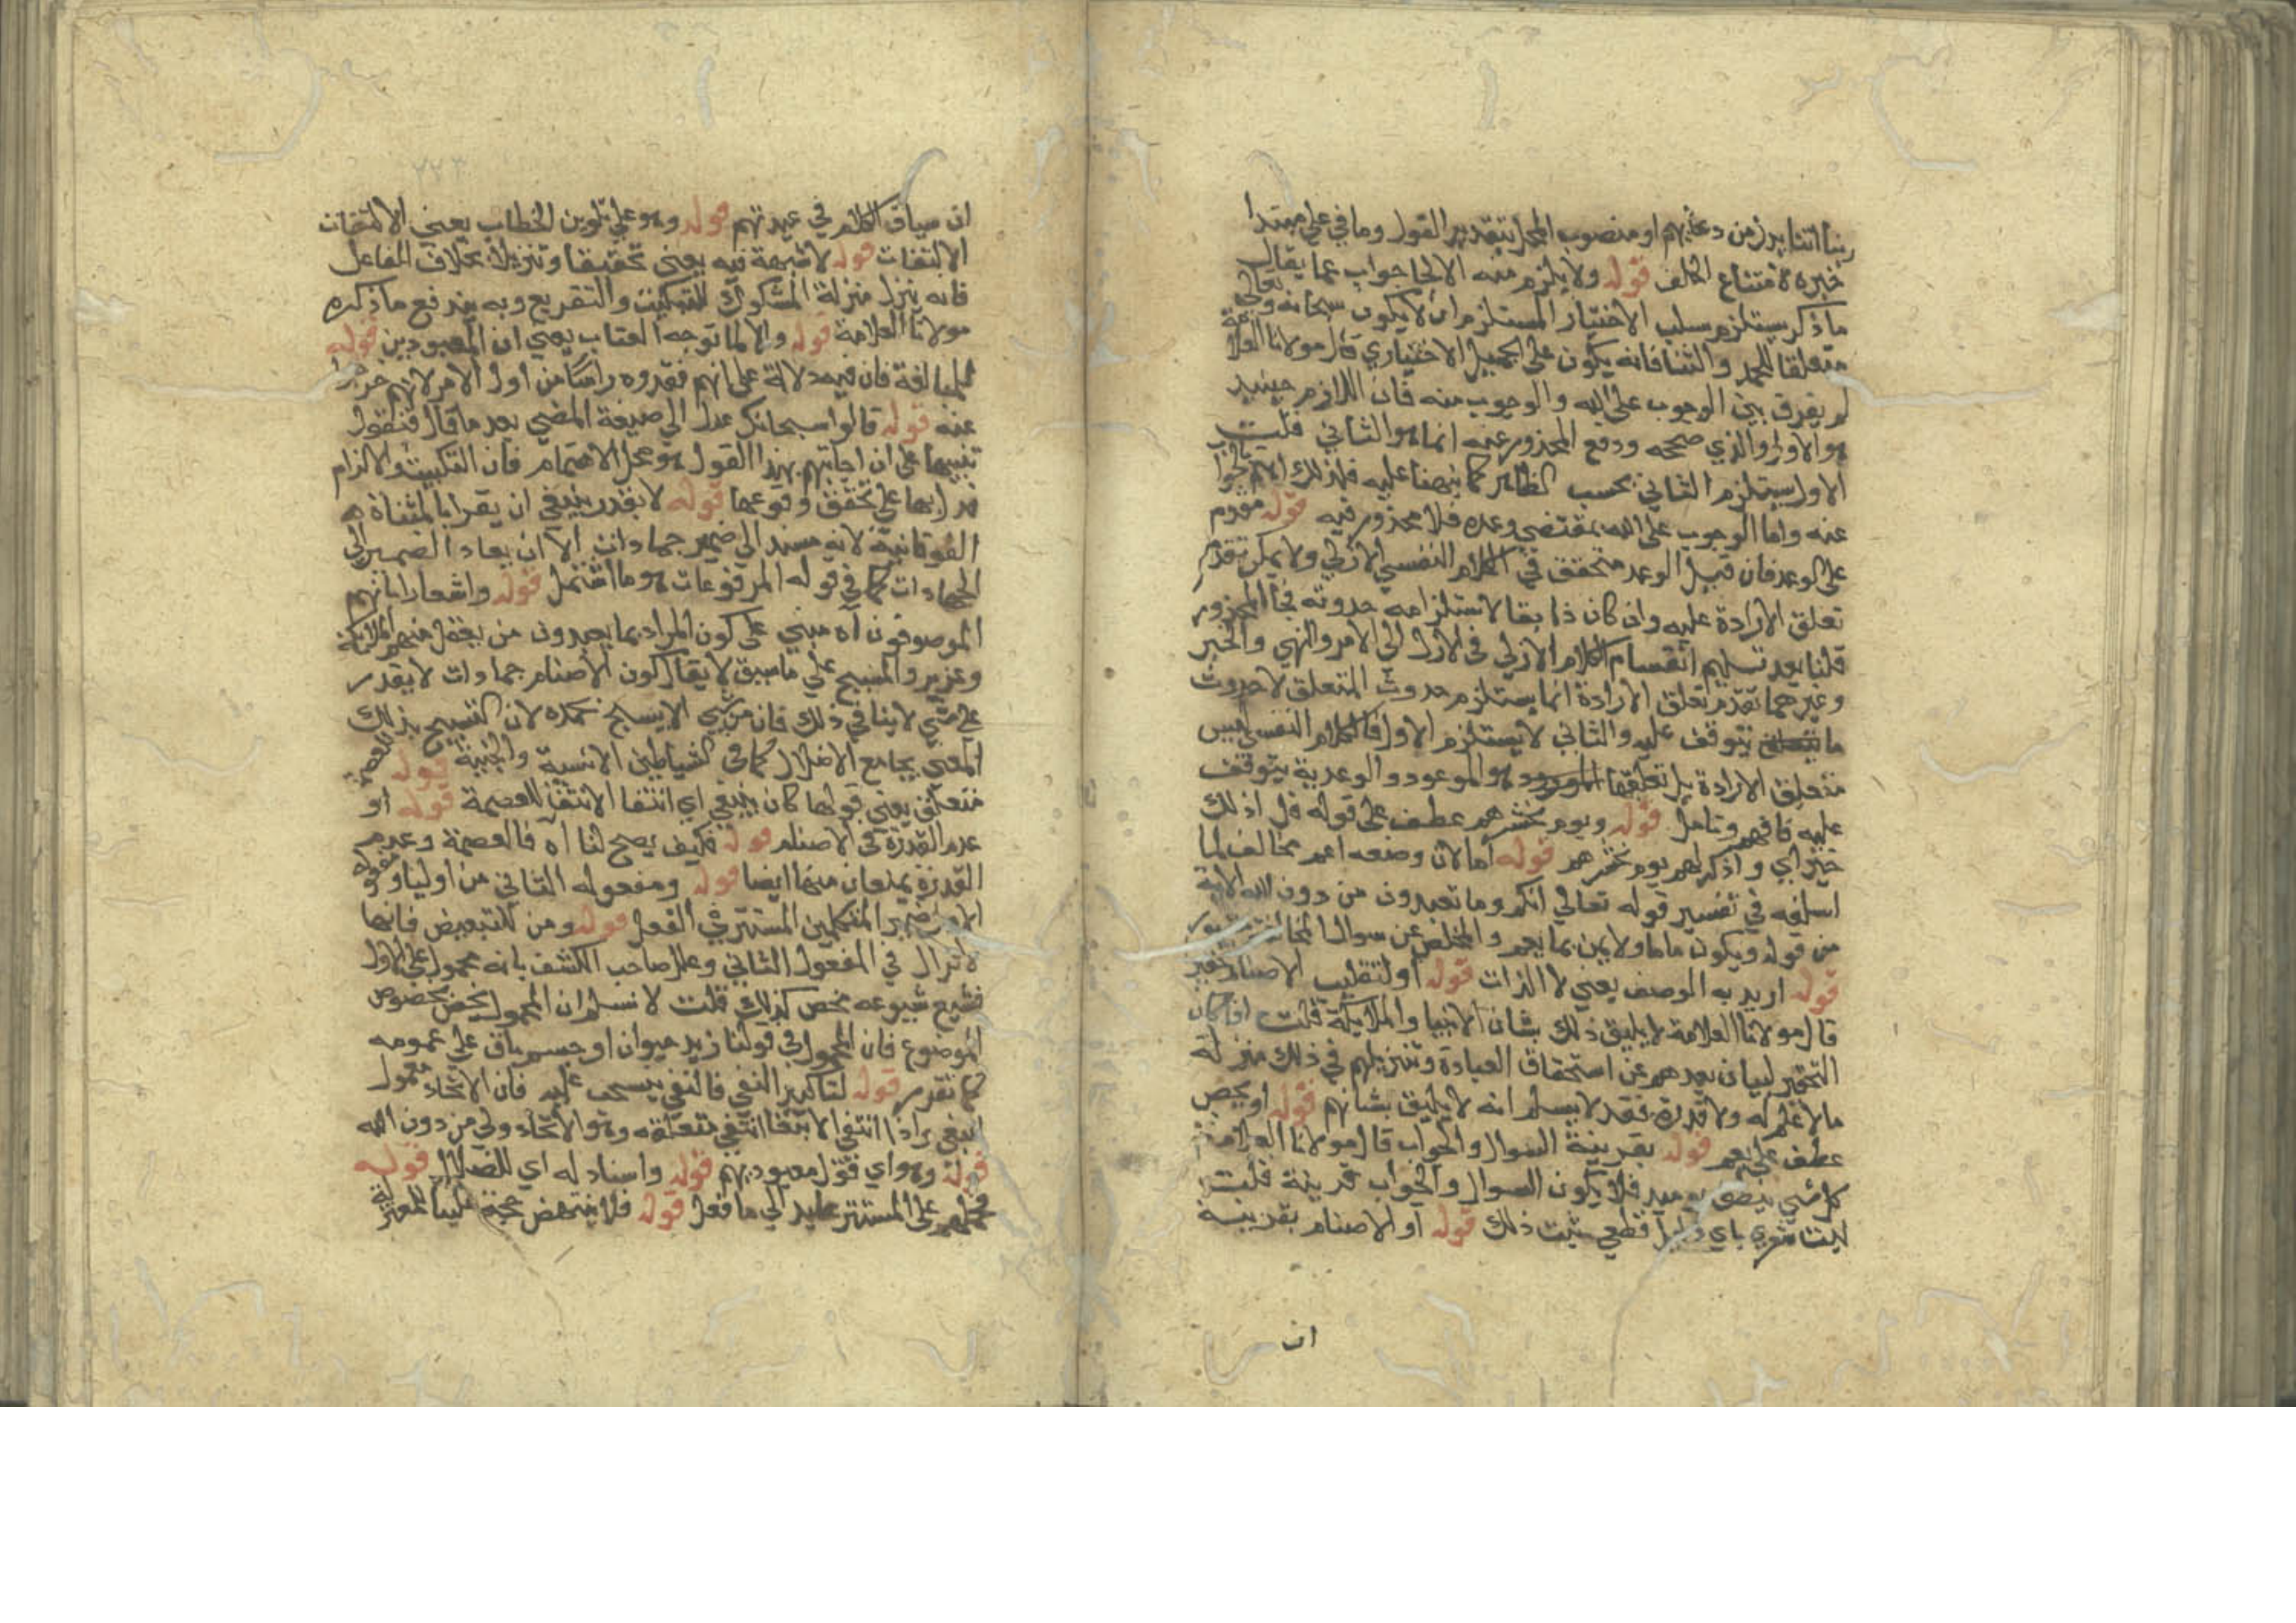 ربنا اتنا بدل من دعائهم او منصوب المحل بتقدير القول وما في على مبتدا
خبره لامتناع الخلف قوله ولا يلزم منه الالجا جواب عما يقال
ما ذكر يستلزم سلب الاختيار المستلزم ان لا يكون سبحانه وتعالى
متعلقا للحمد والثنا فانه يكون على الجميل الاختياري قال مولانا العلامة
لم يفرق بين الوجوب على الله والوجوب منه فان اللازم حينيد
هو الاول والذي صححه ودفع المحذور عنه انما هو الثاني قلت
الاول يستلزم الثاني بحسب الظاهر كما نبهنا عليه فلذلك
عنه واما الوجوب على الله بمقتضى وعده فلا محذور فيه قوله مقدم
على الوعد فان قيل الوعد متحقق في الكلام النفسي الازلي ولا يمكن تقدم
تعلق الارادة عليه وان كان ذلك سابقا لاستلزامه حدوثه فجا المحذور
قلنا بعد تسليم انقسام الكلام الازلي في الازل الى الامر والنهي والخبر
وغيرهما تقدم تعلق الارادة انما يستلزم حدوث المتعلق لا حدوث
ما يتوقف عليه والثاني لا يستلزم الاول فالكلام النفسي ليس
متعلق الارادة بل تعلقها الموعود هو الموعود والوعدية يتوقف
عليه فافهم وتامل قوله ويوم نحشرهم عطف على قوله قل اذلك
خير اي واذكر لهم يوم نحشرهم قوله اما لان وضعه اعم مخالف لما
اسلفه في تفسير قوله تعالى انكم وما تعبدون من دون الله الاية
من قوله ويكون ماما ولا بمن بما يعم والمخلص عن سوال المخالفة
قوله اريد به الوصف يعني لا الذات قوله او لتغليب الاصنام
قال مولانا العلامة لا يليق ذلك بشان الانبيا والملايكة قلت اذا كان
التحقير لبيان بعدهم عن استحقاق العبادة وتنزيلهم في ذلك منزلة
مالا علم له ولا قدرة فقد لا يسلم انه لا يليق بشانهم قوله او يخص
عطف على يعم قوله بقرينة السوال والجواب قال مولانا العلامة
كل شي ينطق يوميد فلا يكون السوال والجواب قرينة قلت
ليت شعري باي دليل قطعي يثبت ذلك قوله او الاصنام بقرينة
ان
ان سياق الكلام في عبدتهم قوله وهو على تلوين الخطاب يعني الالتفات
الالتفات قوله لا شبهة فيه يعني تحقيقا وتنزيلا بخلاف الفاعل
فانه ينزل منزلة المشكوك للتبكيت والتقريع وبه يندفع ما ذكره
مولانا العلامة قوله والا لما توجه العتاب يعني ان المعبودين قوله
للمبالغة فان فيه دلالة على انهم فقدوه راسا من اول الامر لانهم
عنه قوله قالوا سبحانك عدل الى صيغة المضي بعد ما قال فنقول
تنبيها على ان اجابتهم بهذا القول هو محل الاهتمام فان التبكيت والالزام
بها على تحقق وقوعها قوله لا يقدر ينبغي ان يقرا بالمثناة
الفوقانية لانه مسند الى ضمير جمادات الا ان يعاد الضمير الى
الجمادات كما في قوله المرفوعات هو ما اشتمل قوله واشعارا بانهم
الموصوفون اه مبني على كون المراد بما يعبدون من يعقل منهم الملائكة
وعزير والمسيح على ما سبق لا يقال كون الاصنام جمادات لا يقدر
على شي لا ينافي ذلك فان من شي الا يسبح بحمده لان التسبيح بذلك
المعنى يجامع الاضلال كما في الشياطين الانسية والجنية قوله للعصمة
متعلق يعني قولها كان ينبغي اي انتفا الانتفا للعصمة قوله او
عدم القدرة في الاصنام قوله فكيف يصح لنا اه فالعصمة وعدم
القدرة يمنعان منها ايضا قوله ومفعوله الثاني من اوليا ومفعوله
الاول ضمير المتكلمين المستتر في الفعل قوله ومن للتبعيض فانها
لا تزال في المفعول الثاني وعلل صاحب الكشف بانه محمول على الاول
فيشيع شيوعه ويخص كذلك قلت لا نسلم ان المحمول يخص بخصوص
الموضوع فان المحمول في قولنا زيد حيوان او جسم باق على عمومه
كما تقرر قوله لتاكيد النفي فالنفي ينسحب عليه فان الاتخاذ معمول
ينبغي فاذا انتفى الابتغا انتفى متعلقه وهو الاتخاذ ولي من دون الله
قوله وهو اي فتول معبوديهم قوله واسناد له اي للضلال قوله
على المستتر عايد الى ما فعل قوله فلا ينتهض حجة علينا للمعتزلة